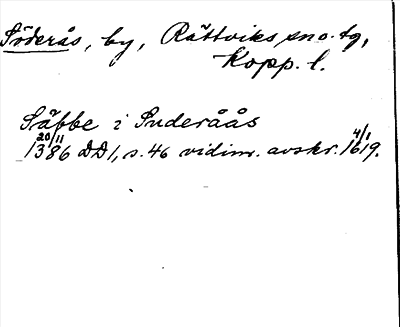 Söderås, by, Rättviks sno. tg,
Kopp. l.
Säbbe i Suderåås
20/11 1386 DD1, s. 46 vidim. avskr. 4/1 1619.